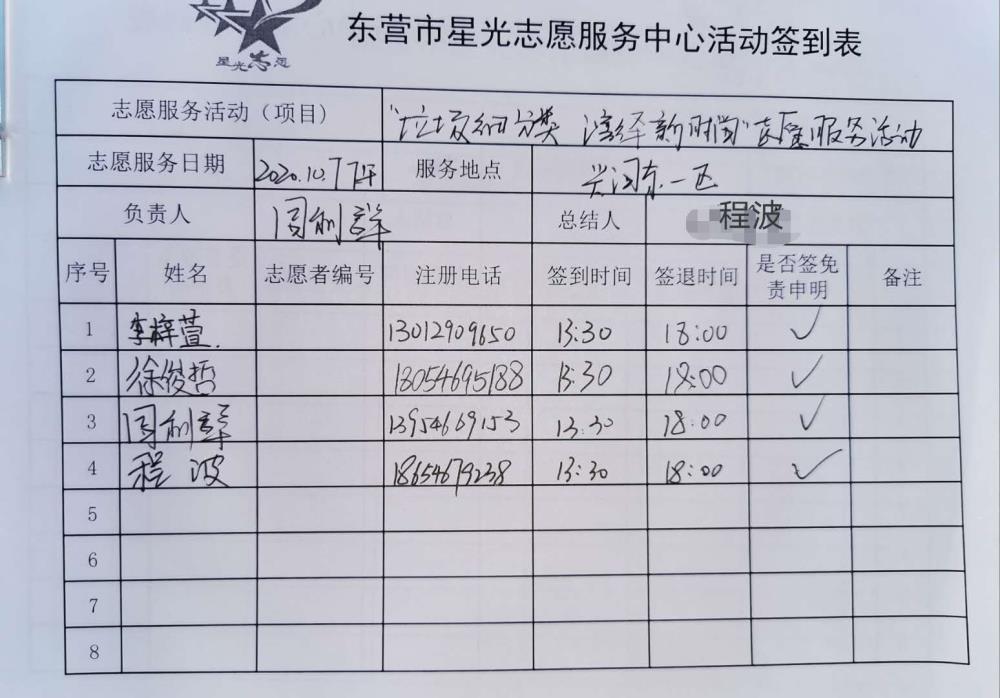 星光志愿
东营市星光志愿服务中心活动签到表
志愿服务活动（项目） "垃圾细分类 演绎新时尚"志愿服务活动
志愿服务日期 2020.10.7 下午 服务地点 兴河东一区
负责人 周利群 总结人 程波
序号 姓名 志愿者编号 注册电话 签到时间 签退时间 是否签免责申明 备注
1 李梓萱. 13012909650 13:30 18:00 ✓
2 徐俊哲 18054695188 13:30 18:00 ✓
3 周利群 13954669153 13:30 18:00 ✓
4 程波 18654679238 13:30 18:00 ✓
5
6
7
8